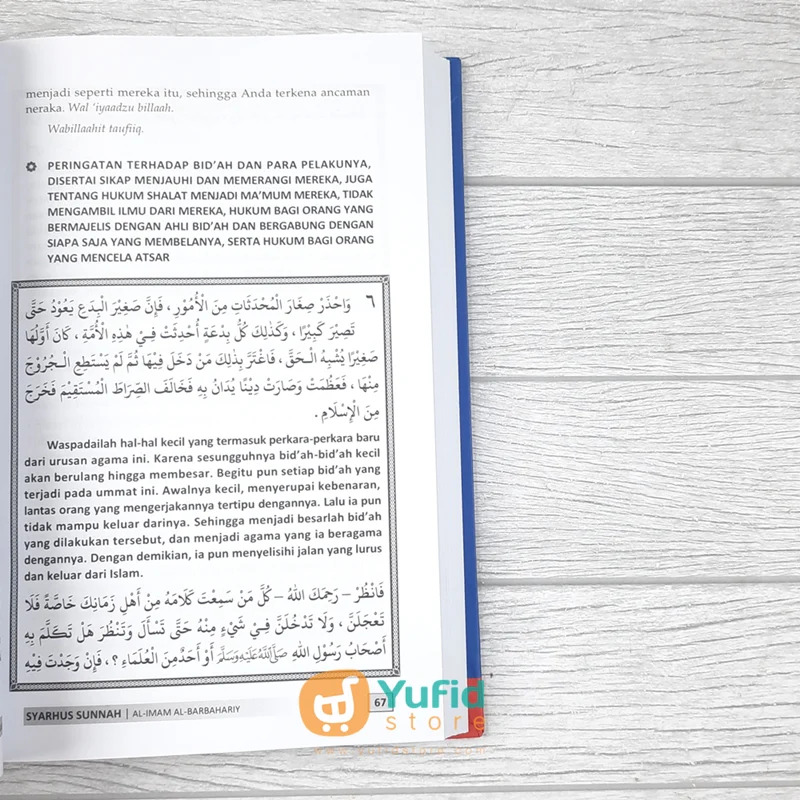 menjadi seperti mereka itu, sehingga Anda terkena ancaman
neraka. Wal 'iyaadzu billaah.
Wabillaahit taufiiq.
PERINGATAN TERHADAP BID'AH DAN PARA PELAKUNYA,
DISERTAI SIKAP MENJAUHI DAN MEMERANGI MEREKA, JUGA
TENTANG HUKUM SHALAT MENJADI MA'MUM MEREKA, TIDAK
MENGAMBIL ILMU DARI MEREKA, HUKUM BAGI ORANG YANG
BERMAJELIS DENGAN AHLI BID'AH DAN BERGABUNG DENGAN
SIAPA SAJA YANG MEMBELANYA, SERTA HUKUM BAGI ORANG
YANG MENCELA ATSAR
٦ وَاحْذَرْ صِغَارَ الْمُحْدَثَاتِ مِنَ الْأُمُوْرِ ، فَإِنَّ صَغِيْرَ الْبِدَعِ يَعُوْدُ حَتَّى
تَصِيْرَ كَبِيْرًا ، وَكَذٰلِكَ كُلُّ بِدْعَةٍ أُحْدِثَتْ فِيْ هٰذِهِ الْأُمَّةِ ، كَانَ أَوَّلُهَا
صَغِيْرًا يُشْبِهُ الْحَقَّ ، فَاغْتَرَّ بِذٰلِكَ مَنْ دَخَلَ فِيْهَا ثُمَّ لَمْ يَسْتَطِعِ الْخُرُوْجَ
مِنْهَا ، فَعَظُمَتْ وَصَارَتْ دِيْنًا يُدَانُ بِهِ فَخَالَفَ الصِّرَاطَ الْمُسْتَقِيْمَ فَخَرَجَ
مِنَ الْإِسْلَامِ .
Waspadailah hal-hal kecil yang termasuk perkara-perkara baru
dari urusan agama ini. Karena sesungguhnya bid'ah-bid'ah kecil
akan berulang hingga membesar. Begitu pun setiap bid'ah yang
terjadi pada ummat ini. Awalnya kecil, menyerupai kebenaran,
lantas orang yang mengerjakannya tertipu dengannya. Lalu ia pun
tidak mampu keluar darinya. Sehingga menjadi besarlah bid'ah
yang dilakukan tersebut, dan menjadi agama yang ia beragama
dengannya. Dengan demikian, ia pun menyelisihi jalan yang lurus
dan keluar dari Islam.
فَانْظُرْ – رَحِمَكَ اللهُ – كُلَّ مَنْ سَمِعْتَ كَلَامَهُ مِنْ أَهْلِ زَمَانِكَ خَاصَّةً فَلَا
تَعْجَلَنَّ ، وَلَا تَدْخُلَنَّ فِيْ شَيْءٍ مِنْهُ حَتَّى تَسْأَلَ وَتَنْظُرَ هَلْ تَكَلَّمَ بِهِ
أَصْحَابُ رَسُوْلِ اللهِ صَلَّى اللهُ عَلَيْهِ وَسَلَّمَ أَوْ أَحَدٌ مِنَ الْعُلَمَاءِ ؟ ، فَإِنْ وَجَدْتَ فِيْهِ
SYARHUS SUNNAH | AL-IMAM AL-BARBAHARIY
67
Yufid
store